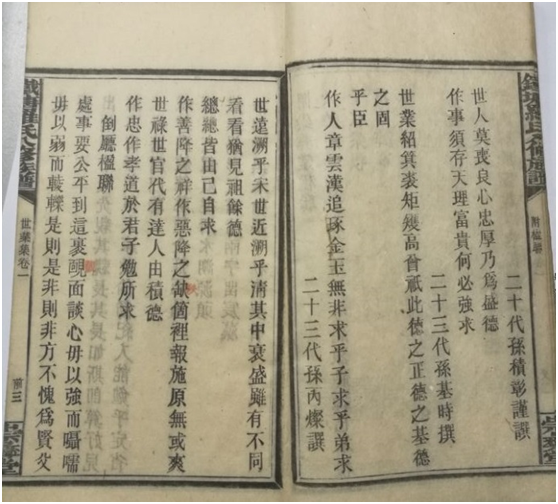 世人莫喪良心忠厚乃爲盛德
作事須存天理富貴何必強求
二十代孫積彰謹譔
世業紹箕裘矩矱高曾祗此德之正德之基德
之固
二十三代孫基時撰
作人章雲漢追琢金玉無非求乎子求乎弟求
乎臣
二十三代孫內燦譔
世遠溯乎宋世近溯乎清其中衰盛雖有不同
看看猶見祖餘德
總總皆由己自求
作善降之祥作惡降之缺箇裡報施原無或爽
世祿世官代有達人由積德
作忠作孝道於君子勉所求
倒廳楹聯
處事要公平到這裏覿面談心毋以強而囁嚅
毋以弱而轅轢是則是非則非方不愧爲賢父
世藻集卷一